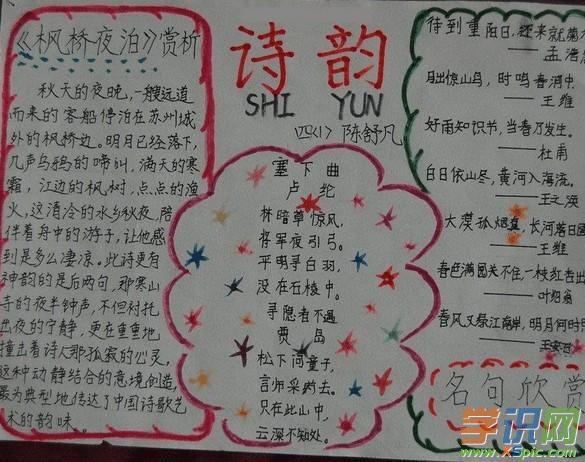 《枫桥夜泊》赏析
秋天的夜晚，一艘远道
而来的客船停泊在苏州城
外的枫桥边。明月已经落下，
几声乌鸦的啼叫，满天的寒
霜，江边的枫树，点点的渔
火，这清冷的水乡秋夜，陪
伴着舟中的游子，让他感
到是多么凄凉。此诗更有
神韵的是后两句，那寒山
寺的夜半钟声，不但衬托
出夜的宁静，更在重重地
撞击着诗人那孤寂的心灵，
这种动静结合的意境创造，
最为典型地传达了中国诗歌艺
术的韵味。
诗韵
SHI YUN
四(1) 陈舒凡
塞下曲
卢纶
林暗草惊风，
将军夜引弓。
平明寻白羽，
没在石棱中。
寻隐者不遇
贾岛
松下问童子，
言师采药去。
只在此山中，
云深不知处。
待到重阳日，还来就菊
——孟浩
月出惊山鸟，时鸣春涧中。
——王维
好雨知识书，当春乃发生。
——杜甫
白日依山尽，黄河入海流。
——王之涣
大漠孤烟直，长河落日圆
——王维
春色满园关不住，一枝红杏出
——叶绍翁
春风又绿江南岸，明月何时
——王安石
名句欣赏
学识网
www.XSpic.com